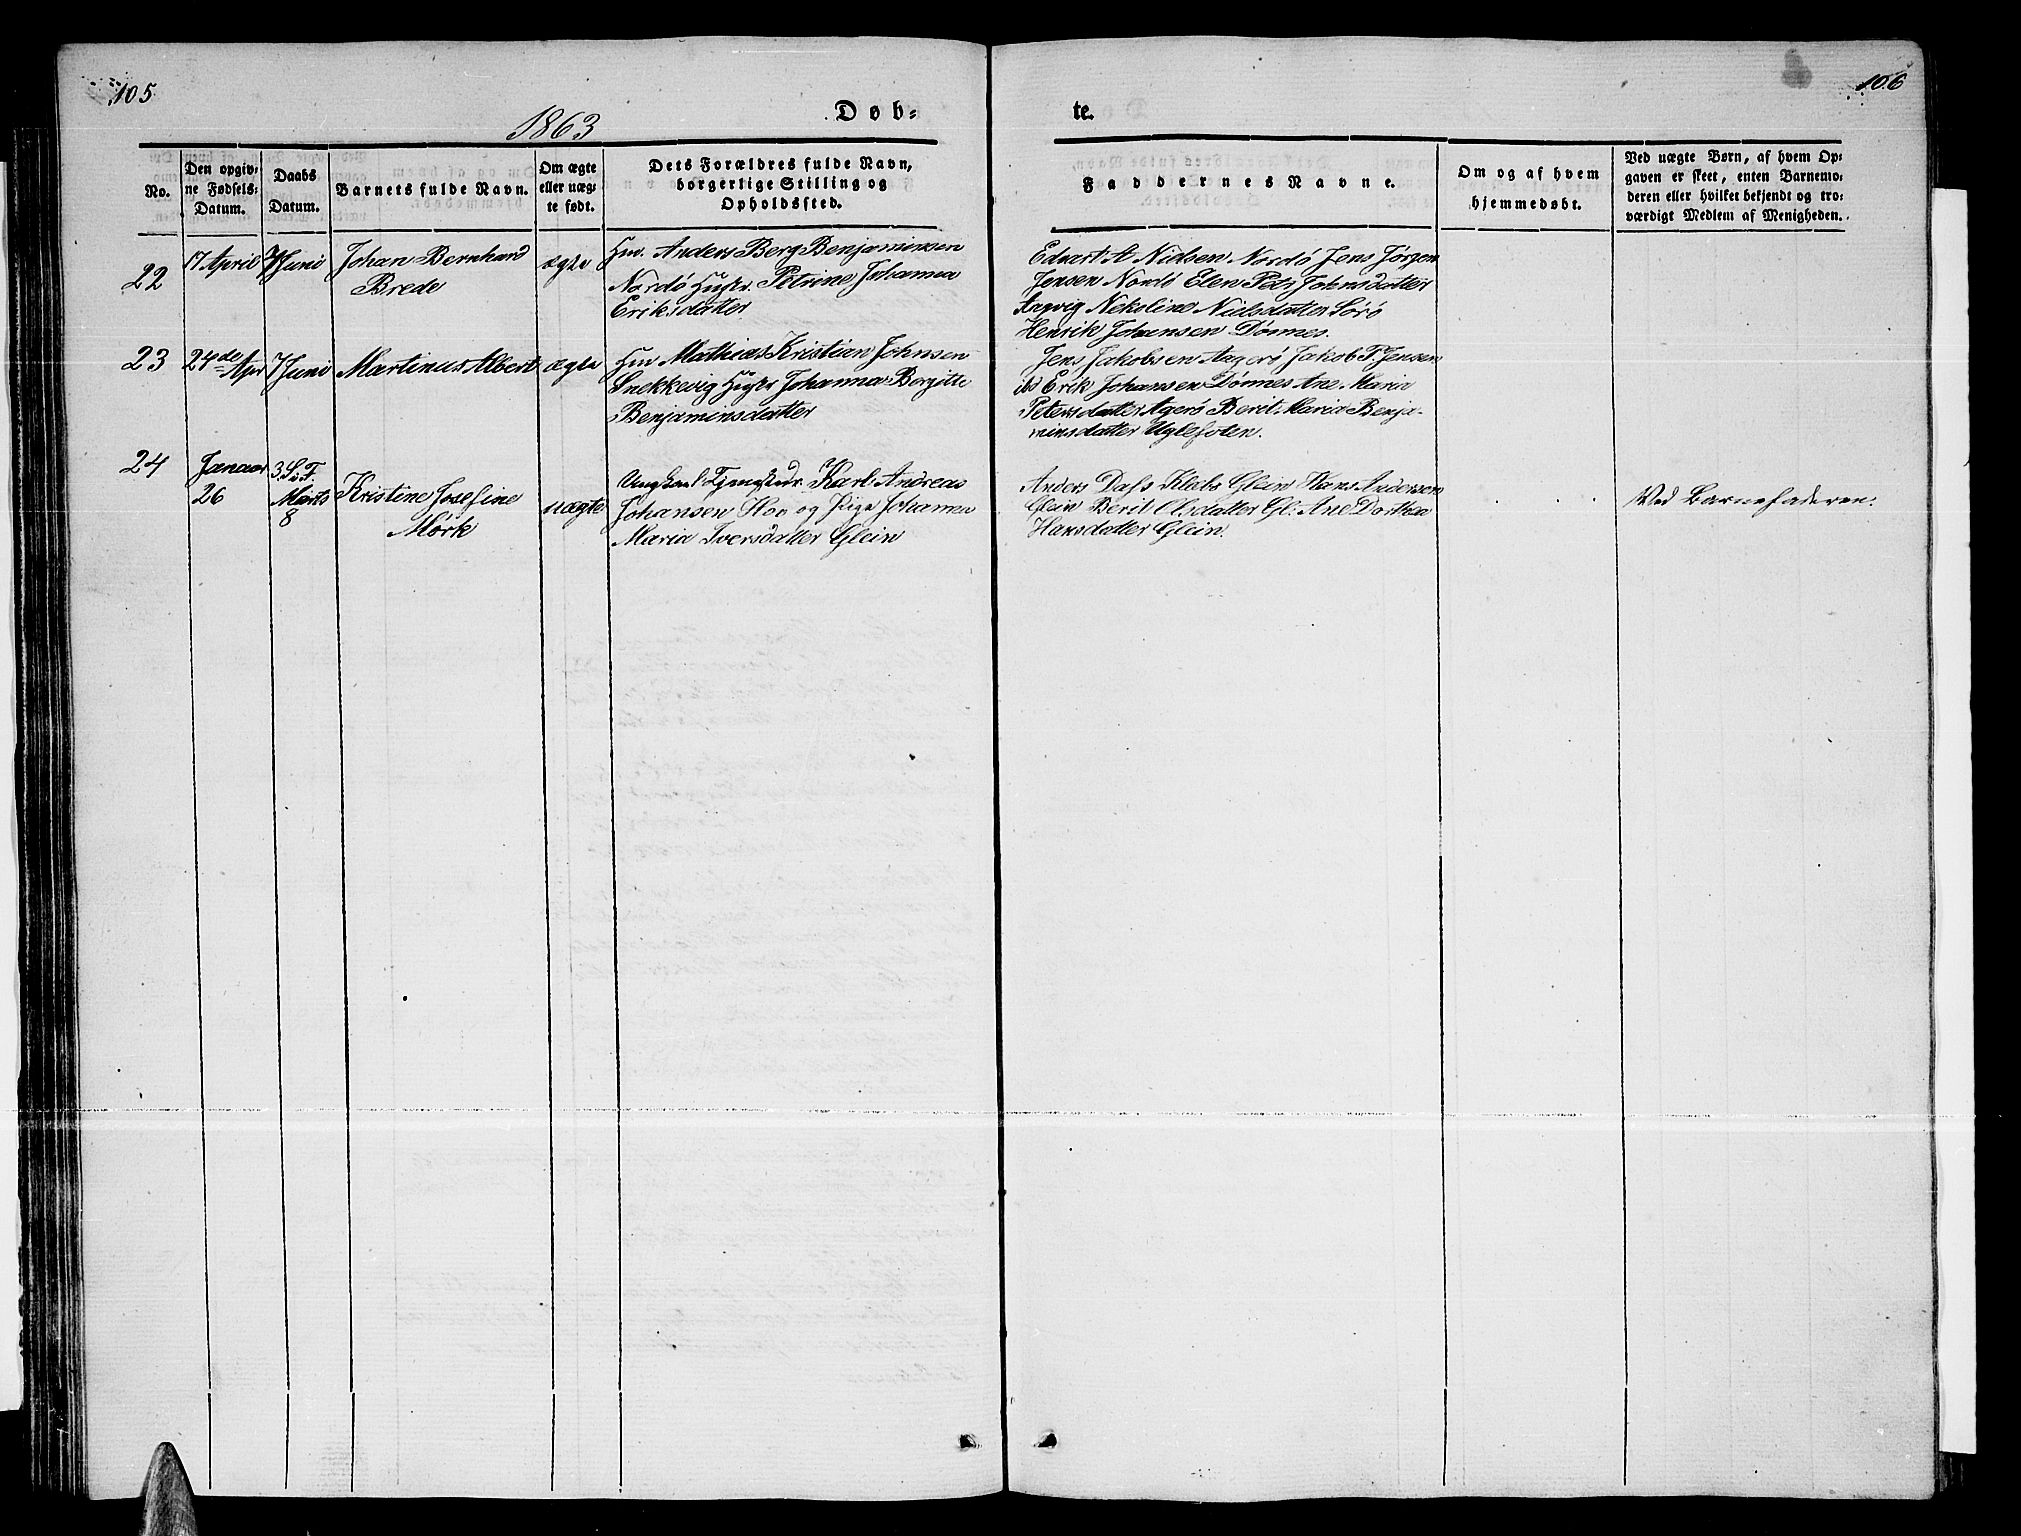 105
1863
Døb-
te.
106
No.
Den opgiv-
ne Fødsels-
Datum.
Daabs
Datum.
Barnets fulde Navn.
Om ægte
eller uæg-
te født.
Dets Forældres fulde Navn,
borgerlige Stilling og
Opholdssted.
Faddernes Navne.
Om og af hvem
hjemmedøbt.
Ved uægte Børn, af hvem Op-
gaven er skeet, enten Barnemo-
deren eller hvilket bekjendt og tro-
værdigt Medlem af Menigheden.
22
17 April
7 Juni
Johan Bernhard
Brede
ægte
Hm. Anders Berg Benjaminsen
Nordö Hustr. Petrine Johanna
Eriksdatter
Edvart A Nielsen Nordö Jens Jørgen
Jensen Nordö Elen Petr Johnsdatter
Nekoline Nielsdatter Sörö
Henrik Johansen Dönnes.
23
24de Apr
7 Juni
Martinus Albert
ægte
Hm Mathias Kristian Johnsen
Snekkevig Hustr Johanna Bergitte
Benjaminsdatter
Jens Jakobsen Aagerö Jakob F. Jensen
ibd Erik Johansen Dönnes Ane Maria
Petersdatter Agerö Berit Maria Benja-
minsdatter Uglefoten.
24
Januar
26
3. S. i F.
Marts
8
Kristine Josefine
Mörk
uægte
Ungkarl Karl Andreas
Johansen Hov og Pige Johanna
Maria Iversdatter Glein
Anders Dass Klabs Glein Hans Andersen
Glein Berit Olsdatter Gl. Ane Dorthea
Hansdatter Glein.
Ved Barnefaderen.